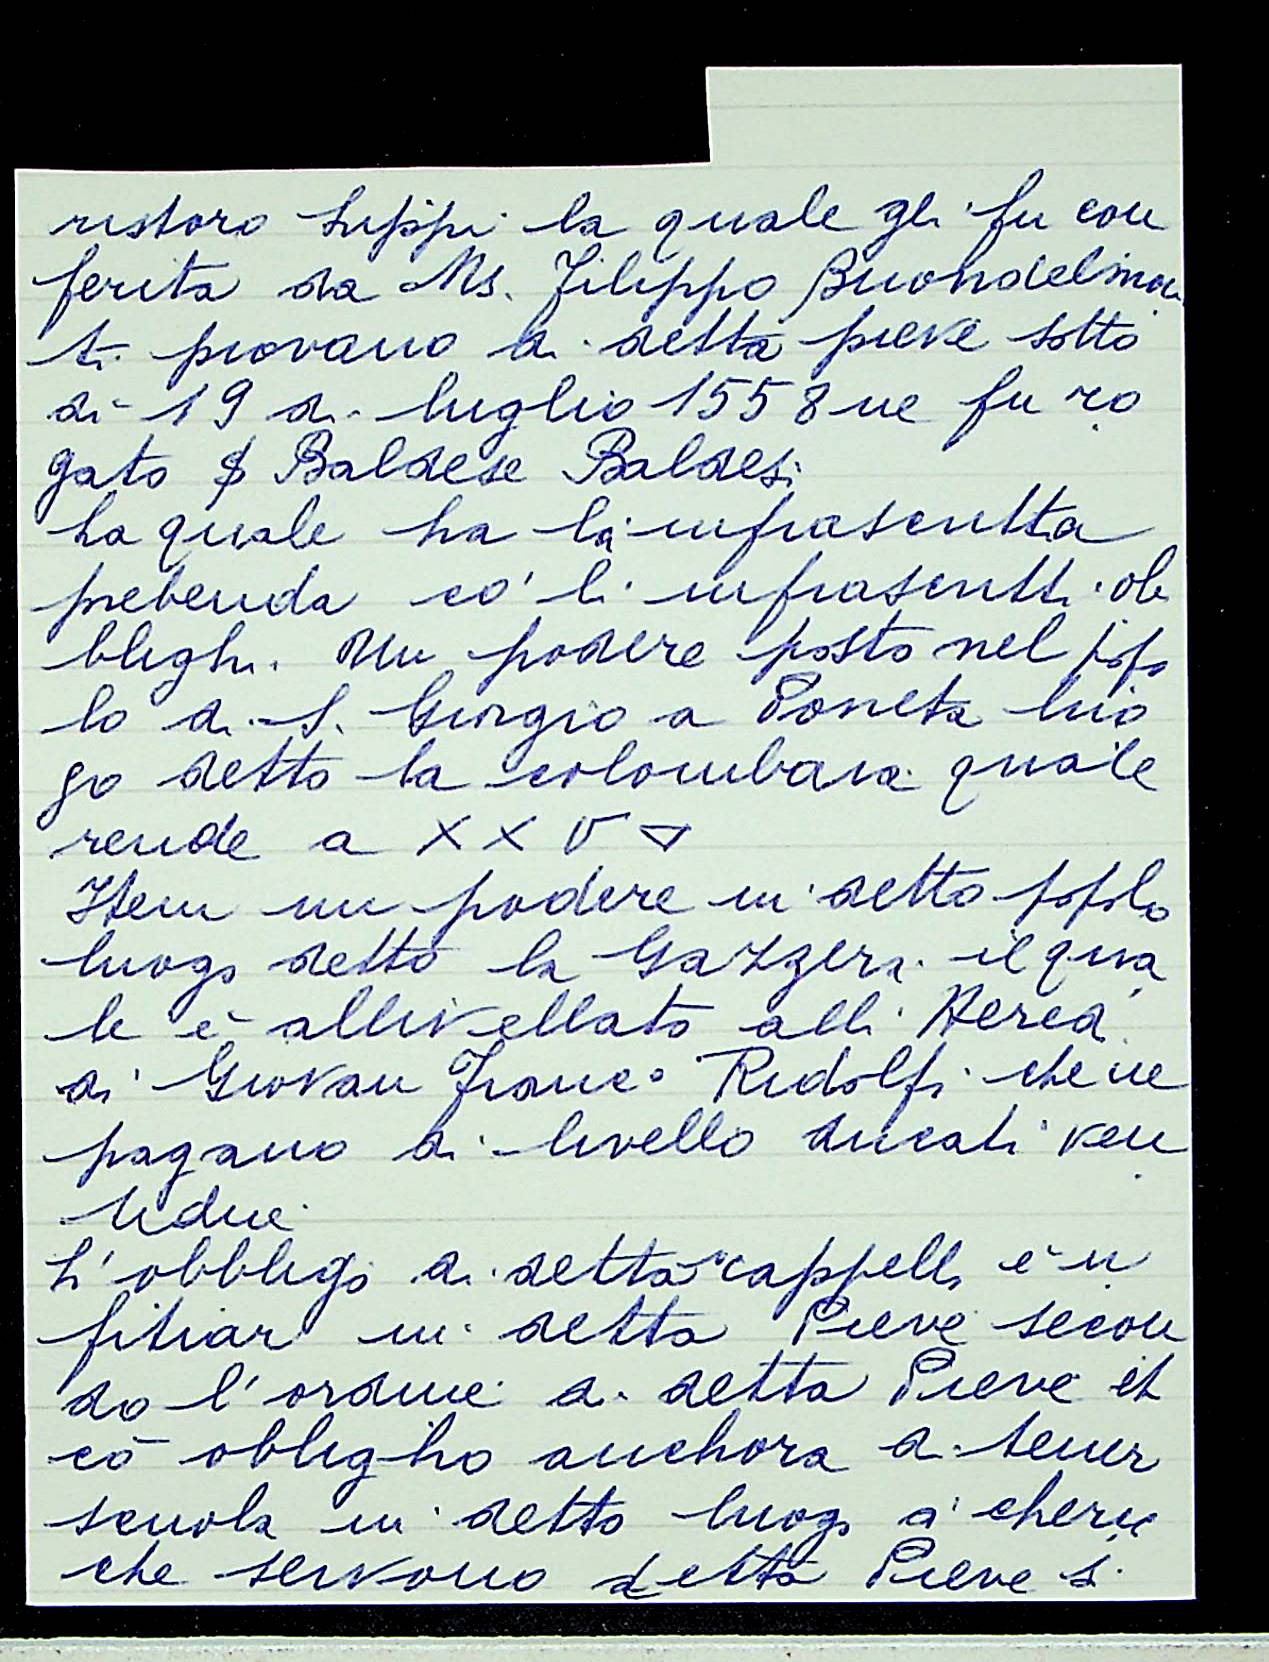 ristoro Lippi la quale gli fu con
ferita da Ms. Filippo Buondelmon
ti piovano di detta pieve sotto
dì 19 di luglio 1558 ne fu ro
gato Baldese Baldesi
La quale ha la infrascritta
prebenda cō li infrascritti ob
blighi. Un podere posto nel popo
lo di S. Giorgio a Poneta luo
go detto la colombaia quale
rende a XXV ▽
Item un podere in detto popolo
luogo detto la Gazzera il qua
le è allivellato alli Heredi
di Giovan Franc° Ridolfi che ne
pagano di livello ducati ven
tidue
L'obbligo di detta cappella è u
fitiar in detta Pieve secon
do l'ordine di detta Pieve et
cō obbligho anchora di tener
scuola in detto luogo a' cherici
che servono detta Pieve s.